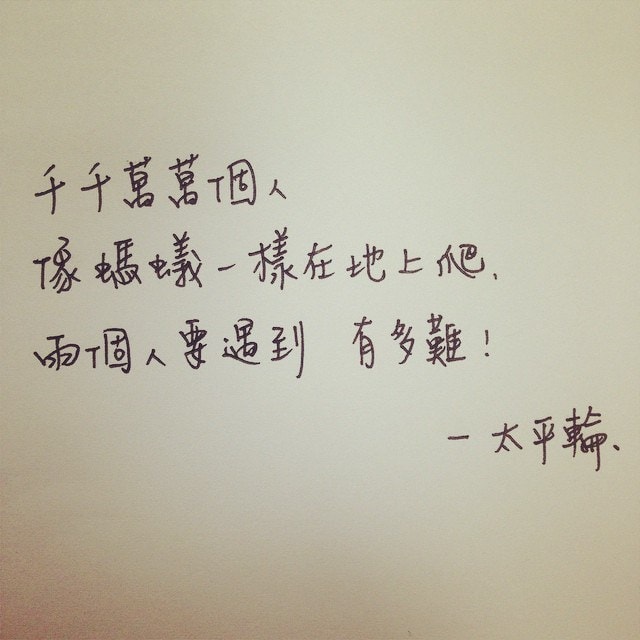 千千萬萬個人
像螞蟻一樣在地上爬、
兩個人要遇到 有多難！
－太平輪、